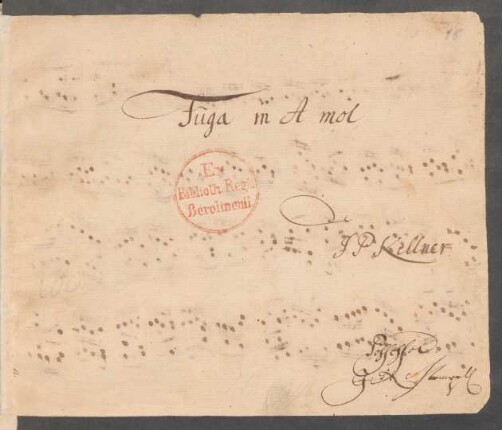 18
Fuga in A mol
Ex
Biblioth. Regia
Berolinensi
de
J P Kellner
Possessor